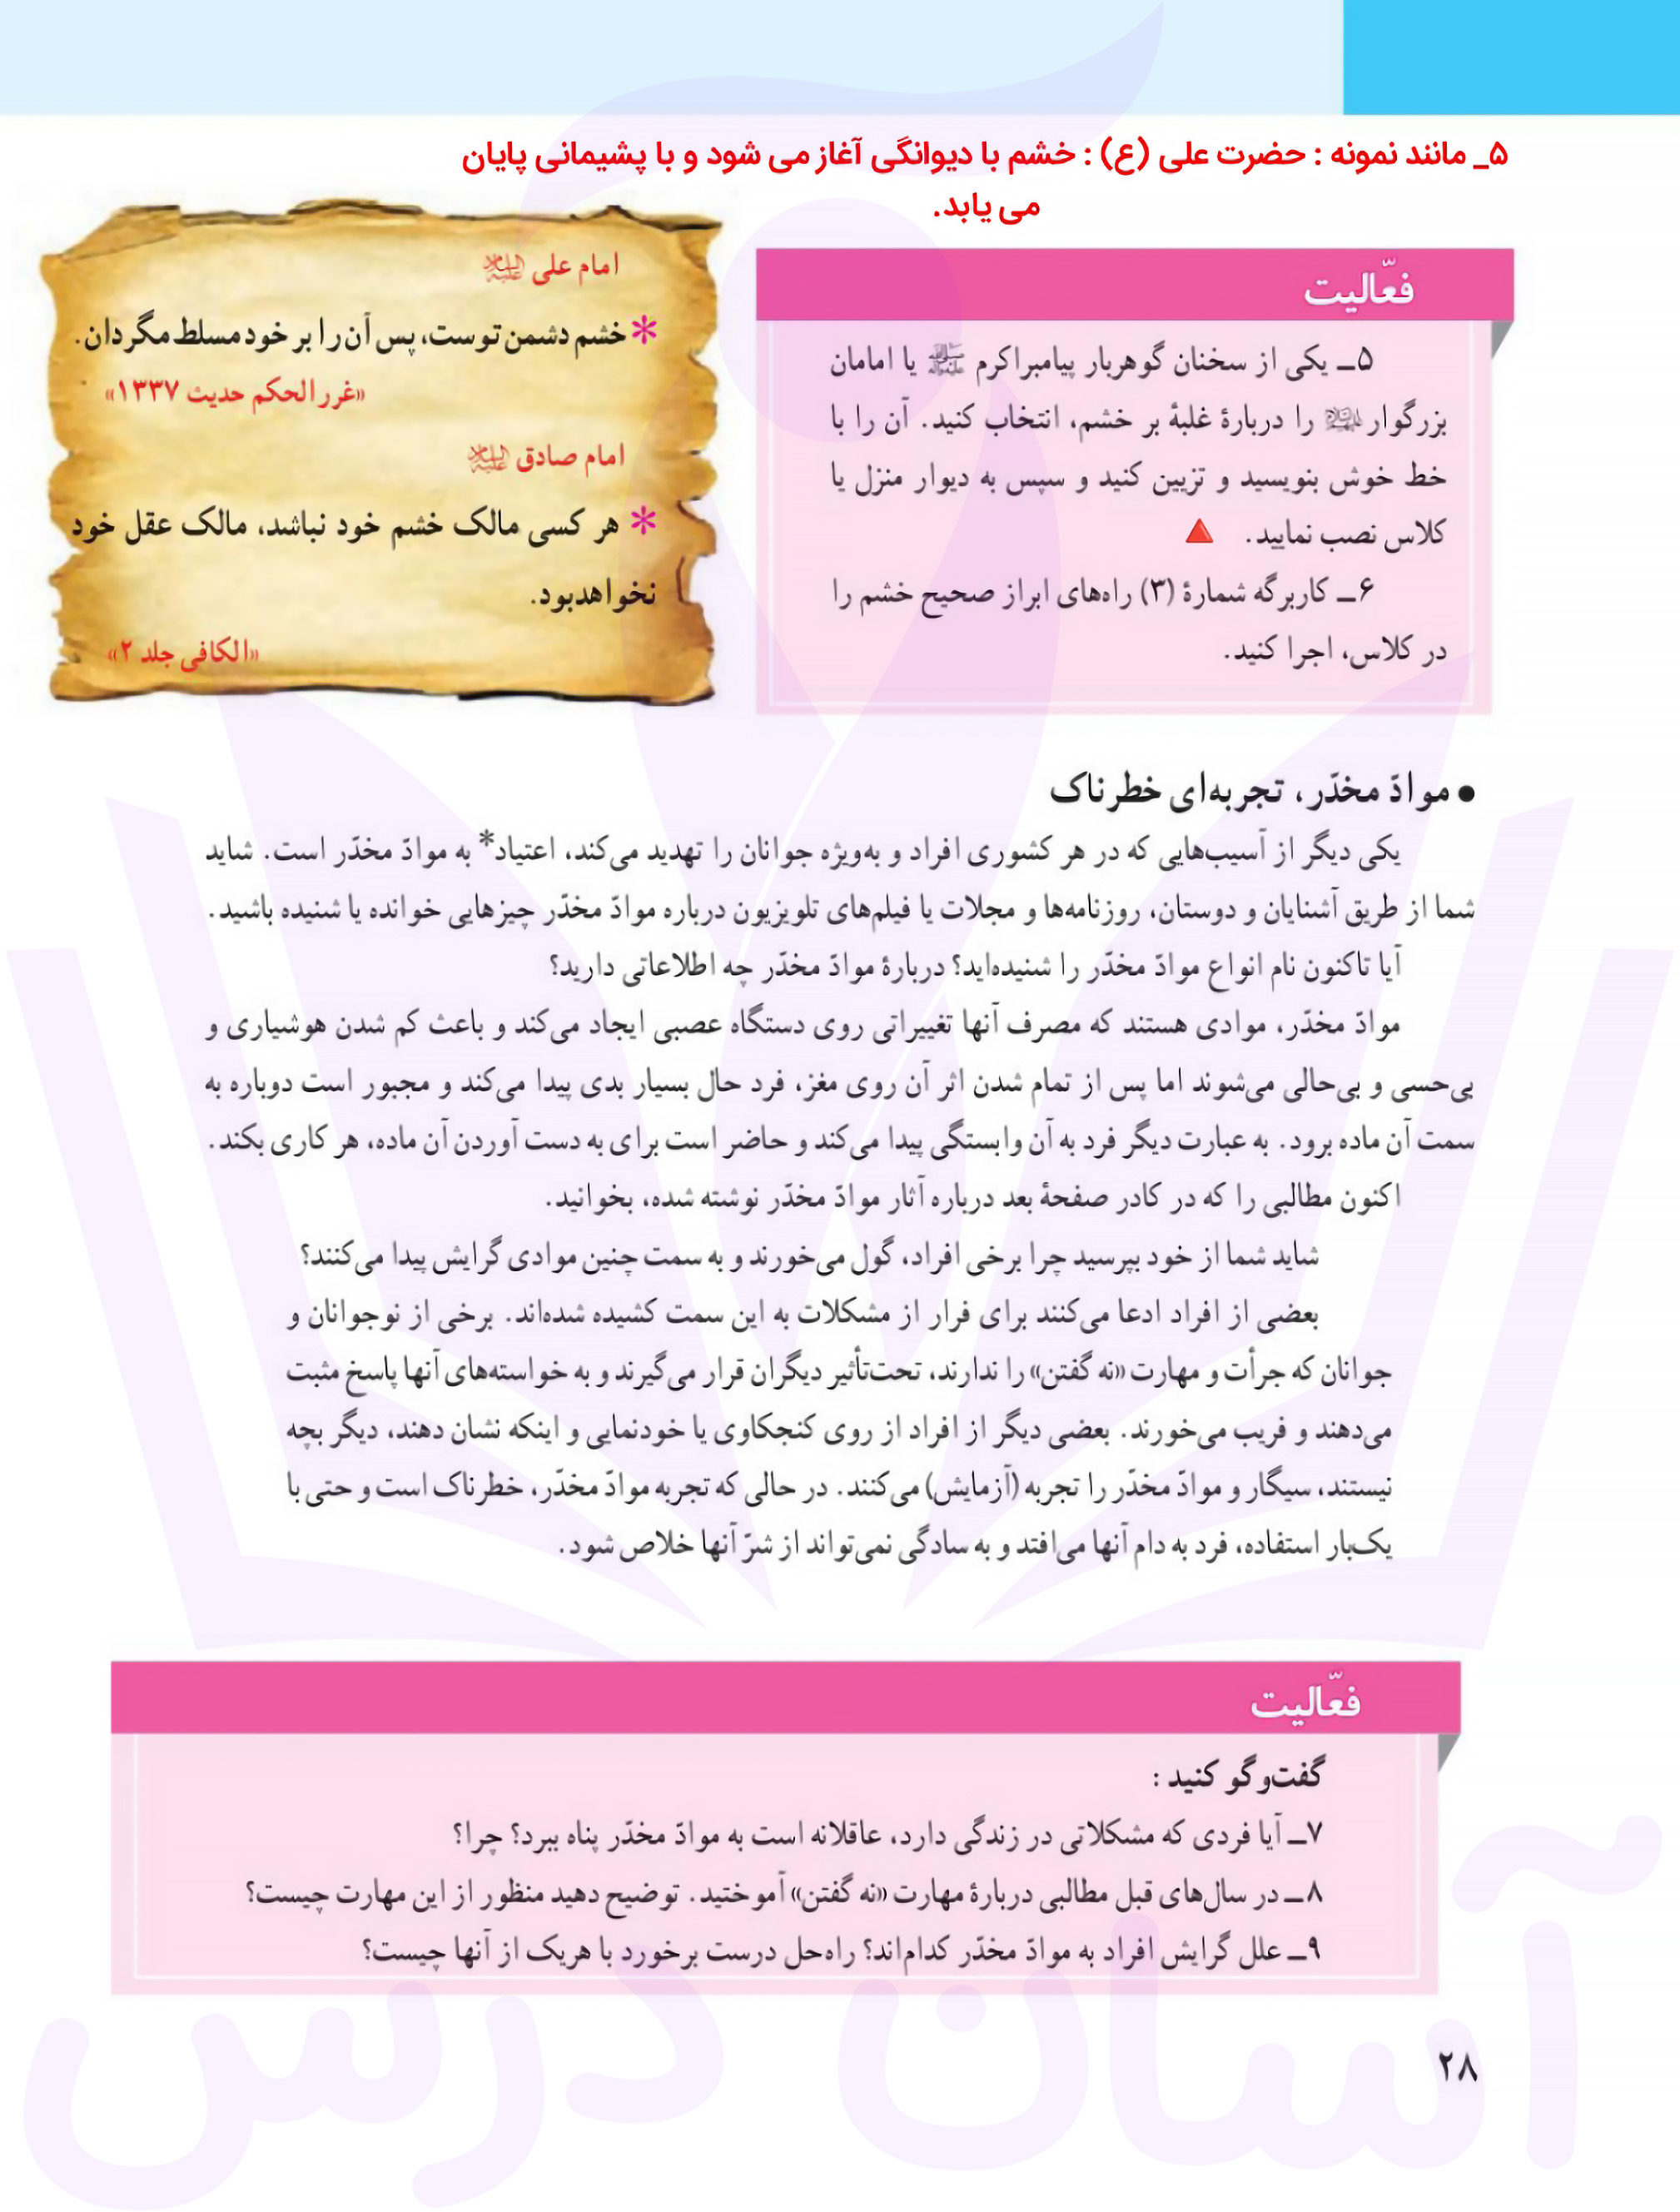 ۵_ مانند نمونه : حضرت علی (ع) : خشم با دیوانگی آغاز می شود و با پشیمانی پایان
می یابد.
فعّالیت
۵ــ یکی از سخنان گوهربار پیامبراکرم ﷺ یا امامان
بزرگوار علیهم‌السلام را دربارهٔ غلبهٔ بر خشم، انتخاب کنید. آن را با
خط خوش بنویسید و تزیین کنید و سپس به دیوار منزل یا
کلاس نصب نمایید.
۶ــ کاربرگه شمارهٔ (۳) راه‌های ابراز صحیح خشم را
در کلاس، اجرا کنید.
امام علی علیه‌السلام
* خشم دشمن توست، پس آن را بر خود مسلط مگردان.
«غرر الحکم حدیث ۱۳۳۷»
امام صادق علیه‌السلام
* هر کسی مالک خشم خود نباشد، مالک عقل خود
نخواهدبود.
«الکافی جلد ۲»
● موادّ مخدّر، تجربه‌ای خطرناک
یکی دیگر از آسیب‌هایی که در هر کشوری افراد و به‌ویژه جوانان را تهدید می‌کند، اعتیاد* به موادّ مخدّر است. شاید
شما از طریق آشنایان و دوستان، روزنامه‌ها و مجلات یا فیلم‌های تلویزیون درباره موادّ مخدّر چیزهایی خوانده یا شنیده باشید.
آیا تاکنون نام انواع موادّ مخدّر را شنیده‌اید؟ دربارهٔ موادّ مخدّر چه اطلاعاتی دارید؟
موادّ مخدّر، موادی هستند که مصرف آنها تغییراتی روی دستگاه عصبی ایجاد می‌کند و باعث کم شدن هوشیاری و
بی‌حسی و بی‌حالی می‌شوند اما پس از تمام شدن اثر آن روی مغز، فرد حال بسیار بدی پیدا می‌کند و مجبور است دوباره به
سمت آن ماده برود. به عبارت دیگر فرد به آن وابستگی پیدا می‌کند و حاضر است برای به دست آوردن آن ماده، هر کاری بکند.
اکنون مطالبی را که در کادر صفحهٔ بعد درباره آثار موادّ مخدّر نوشته شده، بخوانید.
شاید شما از خود بپرسید چرا برخی افراد، گول می‌خورند و به سمت چنین موادی گرایش پیدا می‌کنند؟
بعضی از افراد ادعا می‌کنند برای فرار از مشکلات به این سمت کشیده شده‌اند. برخی از نوجوانان و
جوانان که جرأت و مهارت «نه گفتن» را ندارند، تحت‌تأثیر دیگران قرار می‌گیرند و به خواسته‌های آنها پاسخ مثبت
می‌دهند و فریب می‌خورند. بعضی دیگر از افراد از روی کنجکاوی یا خودنمایی و اینکه نشان دهند، دیگر بچه
نیستند، سیگار و موادّ مخدّر را تجربه (آزمایش) می‌کنند. در حالی که تجربه موادّ مخدّر، خطرناک است و حتی با
یک‌بار استفاده، فرد به دام آنها می‌افتد و به سادگی نمی‌تواند از شرّ آنها خلاص شود.
فعّالیت
گفت‌وگو کنید :
۷ــ آیا فردی که مشکلاتی در زندگی دارد، عاقلانه است به موادّ مخدّر پناه ببرد؟ چرا؟
۸ــ در سال‌های قبل مطالبی دربارهٔ مهارت «نه گفتن» آموختید. توضیح دهید منظور از این مهارت چیست؟
۹ــ علل گرایش افراد به موادّ مخدّر کدام‌اند؟ راه‌حل درست برخورد با هریک از آنها چیست؟
۲۸
آسان درس